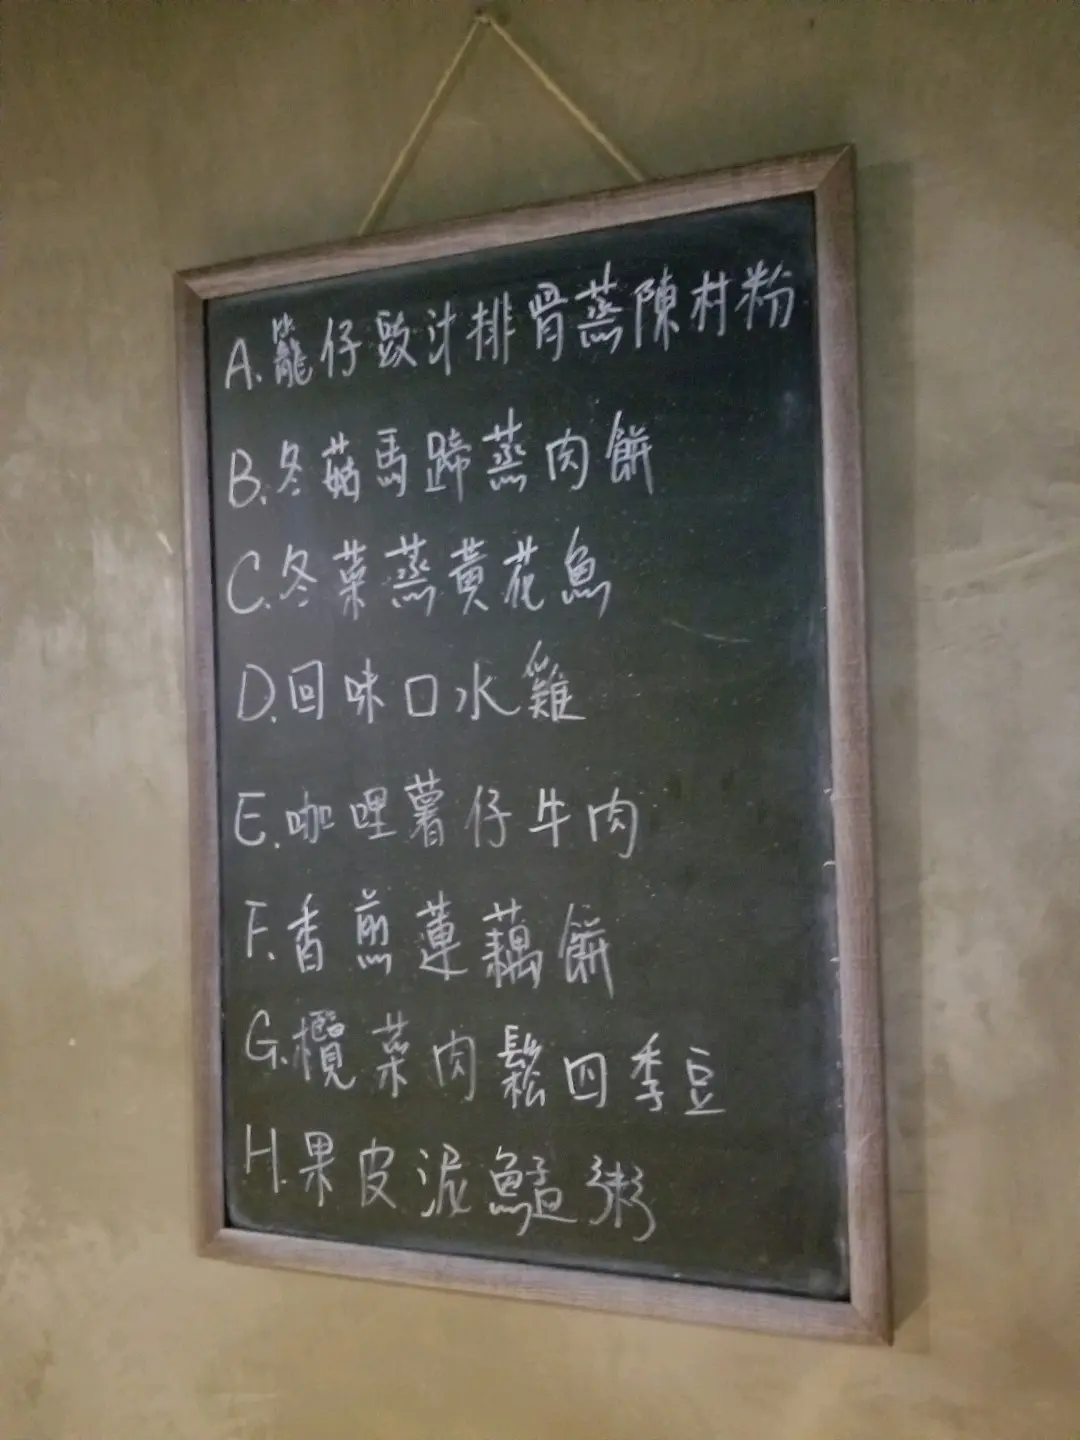 A.籠仔豉汁排骨蒸陳村粉
B.冬菇馬蹄蒸肉餅
C.冬菜蒸黃花魚
D.回味口水雞
E.咖哩薯仔牛肉
F.香煎蓮藕餅
G.欖菜肉鬆四季豆
H.果皮泥鯭粥